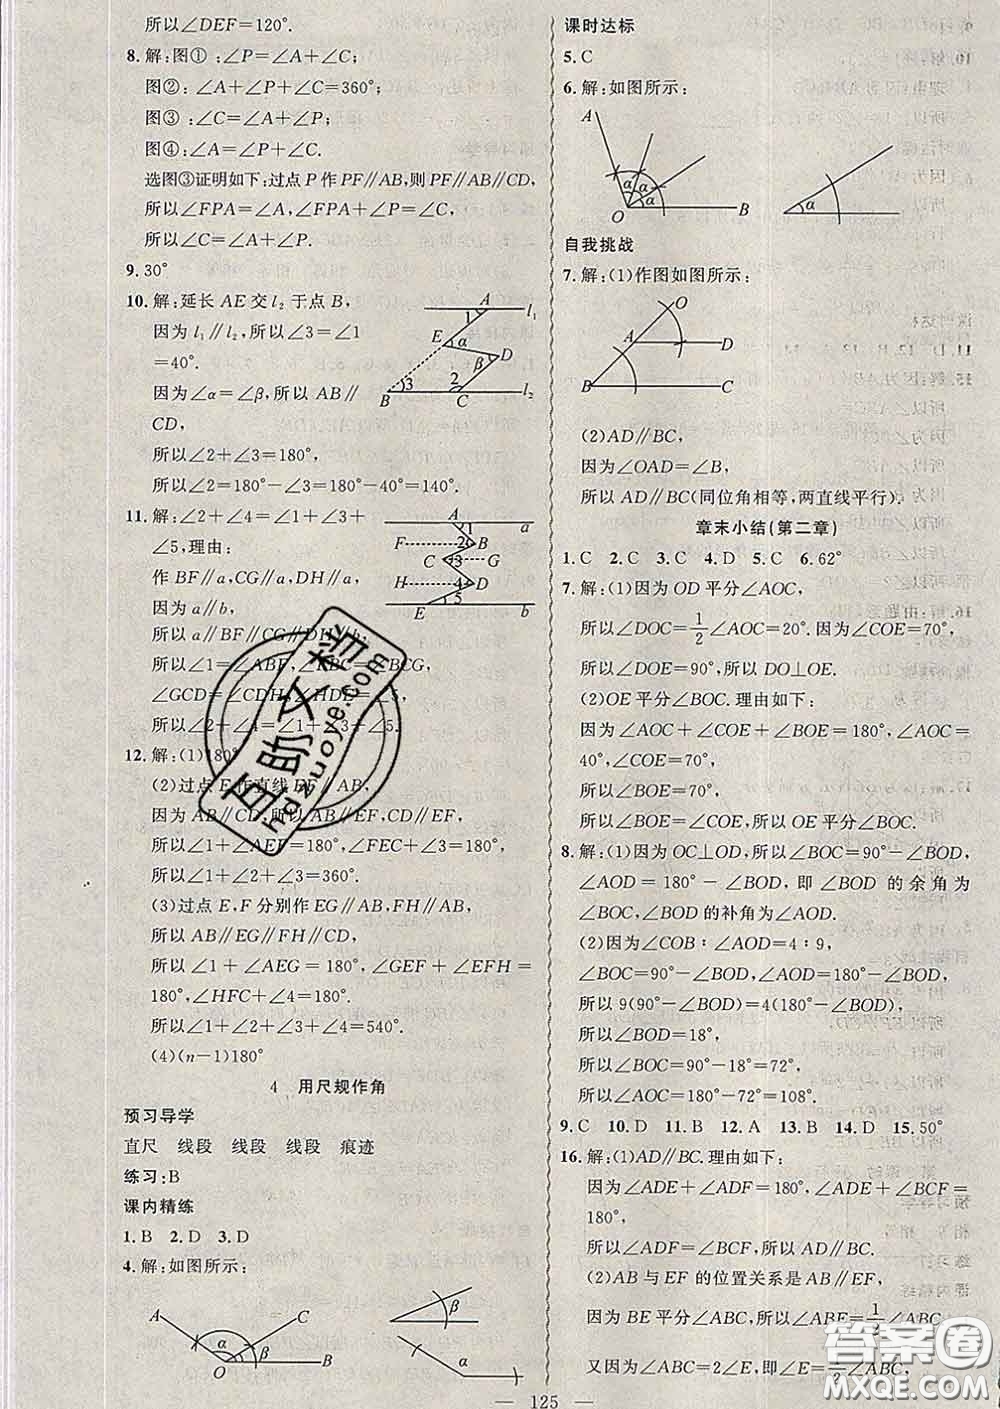 所以∠DEF=120°.
8.解:图①:∠P=∠A+∠C;
图②:∠A+∠P+∠C=360°;
图③:∠C=∠A+∠P;
图④:∠A=∠P+∠C.
选图③证明如下:过点P作PF∥AB,则PF∥AB∥CD,
所以∠FPA=∠A,∠FPA+∠P=∠C,
所以∠C=∠A+∠P.
9.30°
10.解:延长AE交l₂于点B,
因为l₁∥l₂,所以∠3=∠1
=40°.
因为∠α=∠β,所以AB∥
CD,
所以∠2+∠3=180°,
所以∠2=180°-∠3=180°-40°=140°.
A
1
l₁
E
α
D
β
3
2
B
C
l₂
11.解:∠2+∠4=∠1+∠3+
∠5,理由:
作BF∥a,CG∥a,DH∥a,
因为a∥b,
所以a∥BF∥CG∥DH∥b,
所以∠1=∠ABF,∠FBC=∠BCG,
∠GCD=∠CDH,∠HDE=∠5,
所以∠2+∠4=∠1+∠3+∠5.
A
1
a
F
2
B
C
3
G
H
4
D
E
5
b
12.解:(1)180°
(2)过点E作直线EF∥AB,
因为AB∥CD,所以EF∥AB,CD∥EF,
所以∠1+∠AEF=180°,∠FEC+∠3=180°,
所以∠1+∠2+∠3=360°.
(3)过点E,F分别作EG∥AB,FH∥AB,
所以AB∥EG∥FH∥CD,
所以∠1+∠AEG=180°,∠GEF+∠EFH=
180°,∠HFC+∠4=180°,
所以∠1+∠2+∠3+∠4=540°.
(4)(n-1)180°
4 用尺规作角
预习导学
直尺 线段 线段 线段 痕迹
练习:B
课内精练
1.B 2.D 3.D
4.解:如图所示:
A
C
α
O
B
β
β
课时达标
5.C
6.解:如图所示:
A
α
α
α
O
B
α
自我挑战
7.解:(1)作图如图所示:
O
A
D
B
C
(2)AD∥BC,
因为∠OAD=∠B,
所以AD∥BC(同位角相等,两直线平行).
章末小结(第二章)
1.C 2.C 3.C 4.D 5.C 6.62°
7.解:(1)因为OD平分∠AOC,
所以∠DOC=1/2∠AOC=20°.因为∠COE=70°,
所以∠DOE=90°,所以DO⊥OE.
(2)OE平分∠BOC.理由如下:
因为∠AOC+∠COE+∠BOE=180°,∠AOC=
40°,∠COE=70°,
所以∠BOE=70°,
所以∠BOE=∠COE,所以OE平分∠BOC.
8.解:(1)因为OC⊥OD,所以∠BOC=90°-∠BOD,
∠AOD=180°-∠BOD,即∠BOD的余角为
∠BOC,∠BOD的补角为∠AOD.
(2)因为∠COB∶∠AOD=4∶9,
∠BOC=90°-∠BOD,∠AOD=180°-∠BOD,
所以9(90°-∠BOD)=4(180°-∠BOD),
所以∠BOD=18°,
所以∠BOC=90°-18°=72°,
所以∠AOC=180°-72°=108°.
9.C 10.D 11.B 12.A 13.B 14.D 15.50°
16.解:(1)AD∥BC.理由如下:
因为∠ADE+∠ADF=180°,∠ADE+∠BCF=
180°,
所以∠ADF=∠BCF,所以AD∥BC.
(2)AB与EF的位置关系是AB∥EF,
因为BE平分∠ABC,所以∠ABE=1/2∠ABC.
又因为∠ABC=2∠E,即∠E=1/2∠ABC,
— 125 —
百助文档
hdzuoye.com
答案圈
MXQE.COM